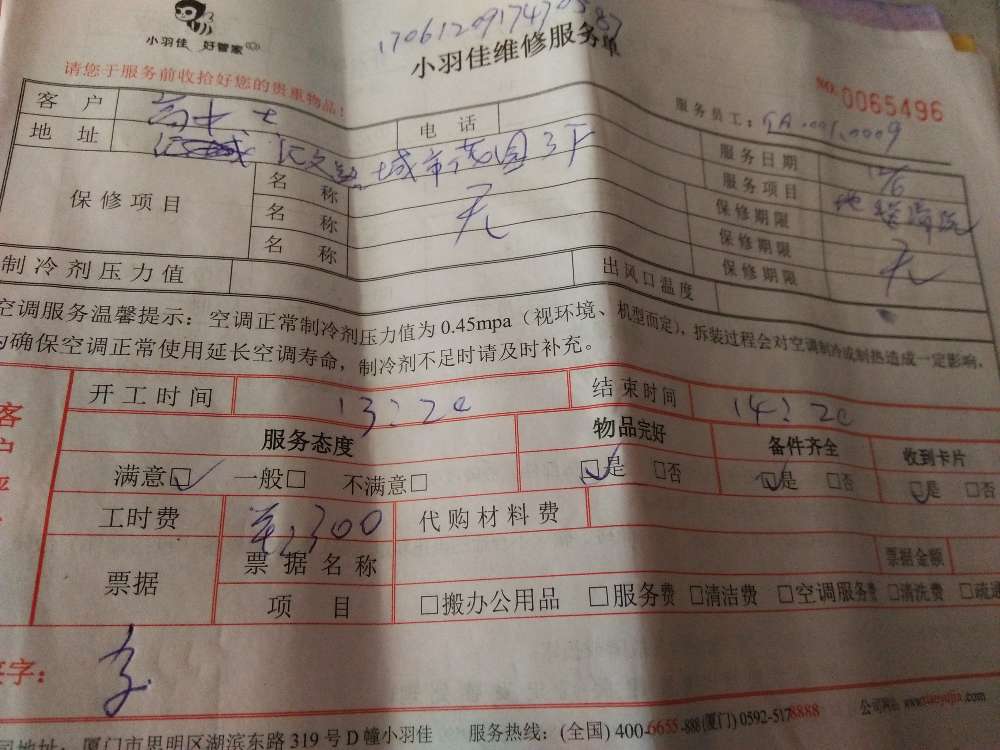 小羽佳 好管家
小羽佳维修服务单
请您于服务前收拾好您的贵重物品!
NO. 0065496
服务员工:
客户
电话
服务日期 12/6
地址 城市花园3F
服务项目 地毯清洗
保修项目 名称 无 保修期限 无
名称 保修期限
名称 保修期限
制冷剂压力值 出风口温度
空调服务温馨提示：空调正常制冷剂压力值为 0.45mpa（视环境、机型而定），拆装过程会对空调制冷或制热造成一定影响，
为确保空调正常使用延长空调寿命，制冷剂不足时请及时补充。
开工时间 13:20 结束时间 14:20
服务态度 物品完好 备件齐全 收到卡片
满意☑ 一般□ 不满意□ ☑是 □否 ☑是 □否 ☑是 □否
工时费 ¥:300 代购材料费
票据 票据名称 票据金额
项目 □搬办公用品 □服务费 □清洁费 □空调服务费 □清洗费
签字:
厦门市思明区湖滨东路 319 号 D 幢小羽佳 服务热线：(全国) 400-6655-888 (厦门) 0592-5178888 公司网站 www.xiaoyujia.com